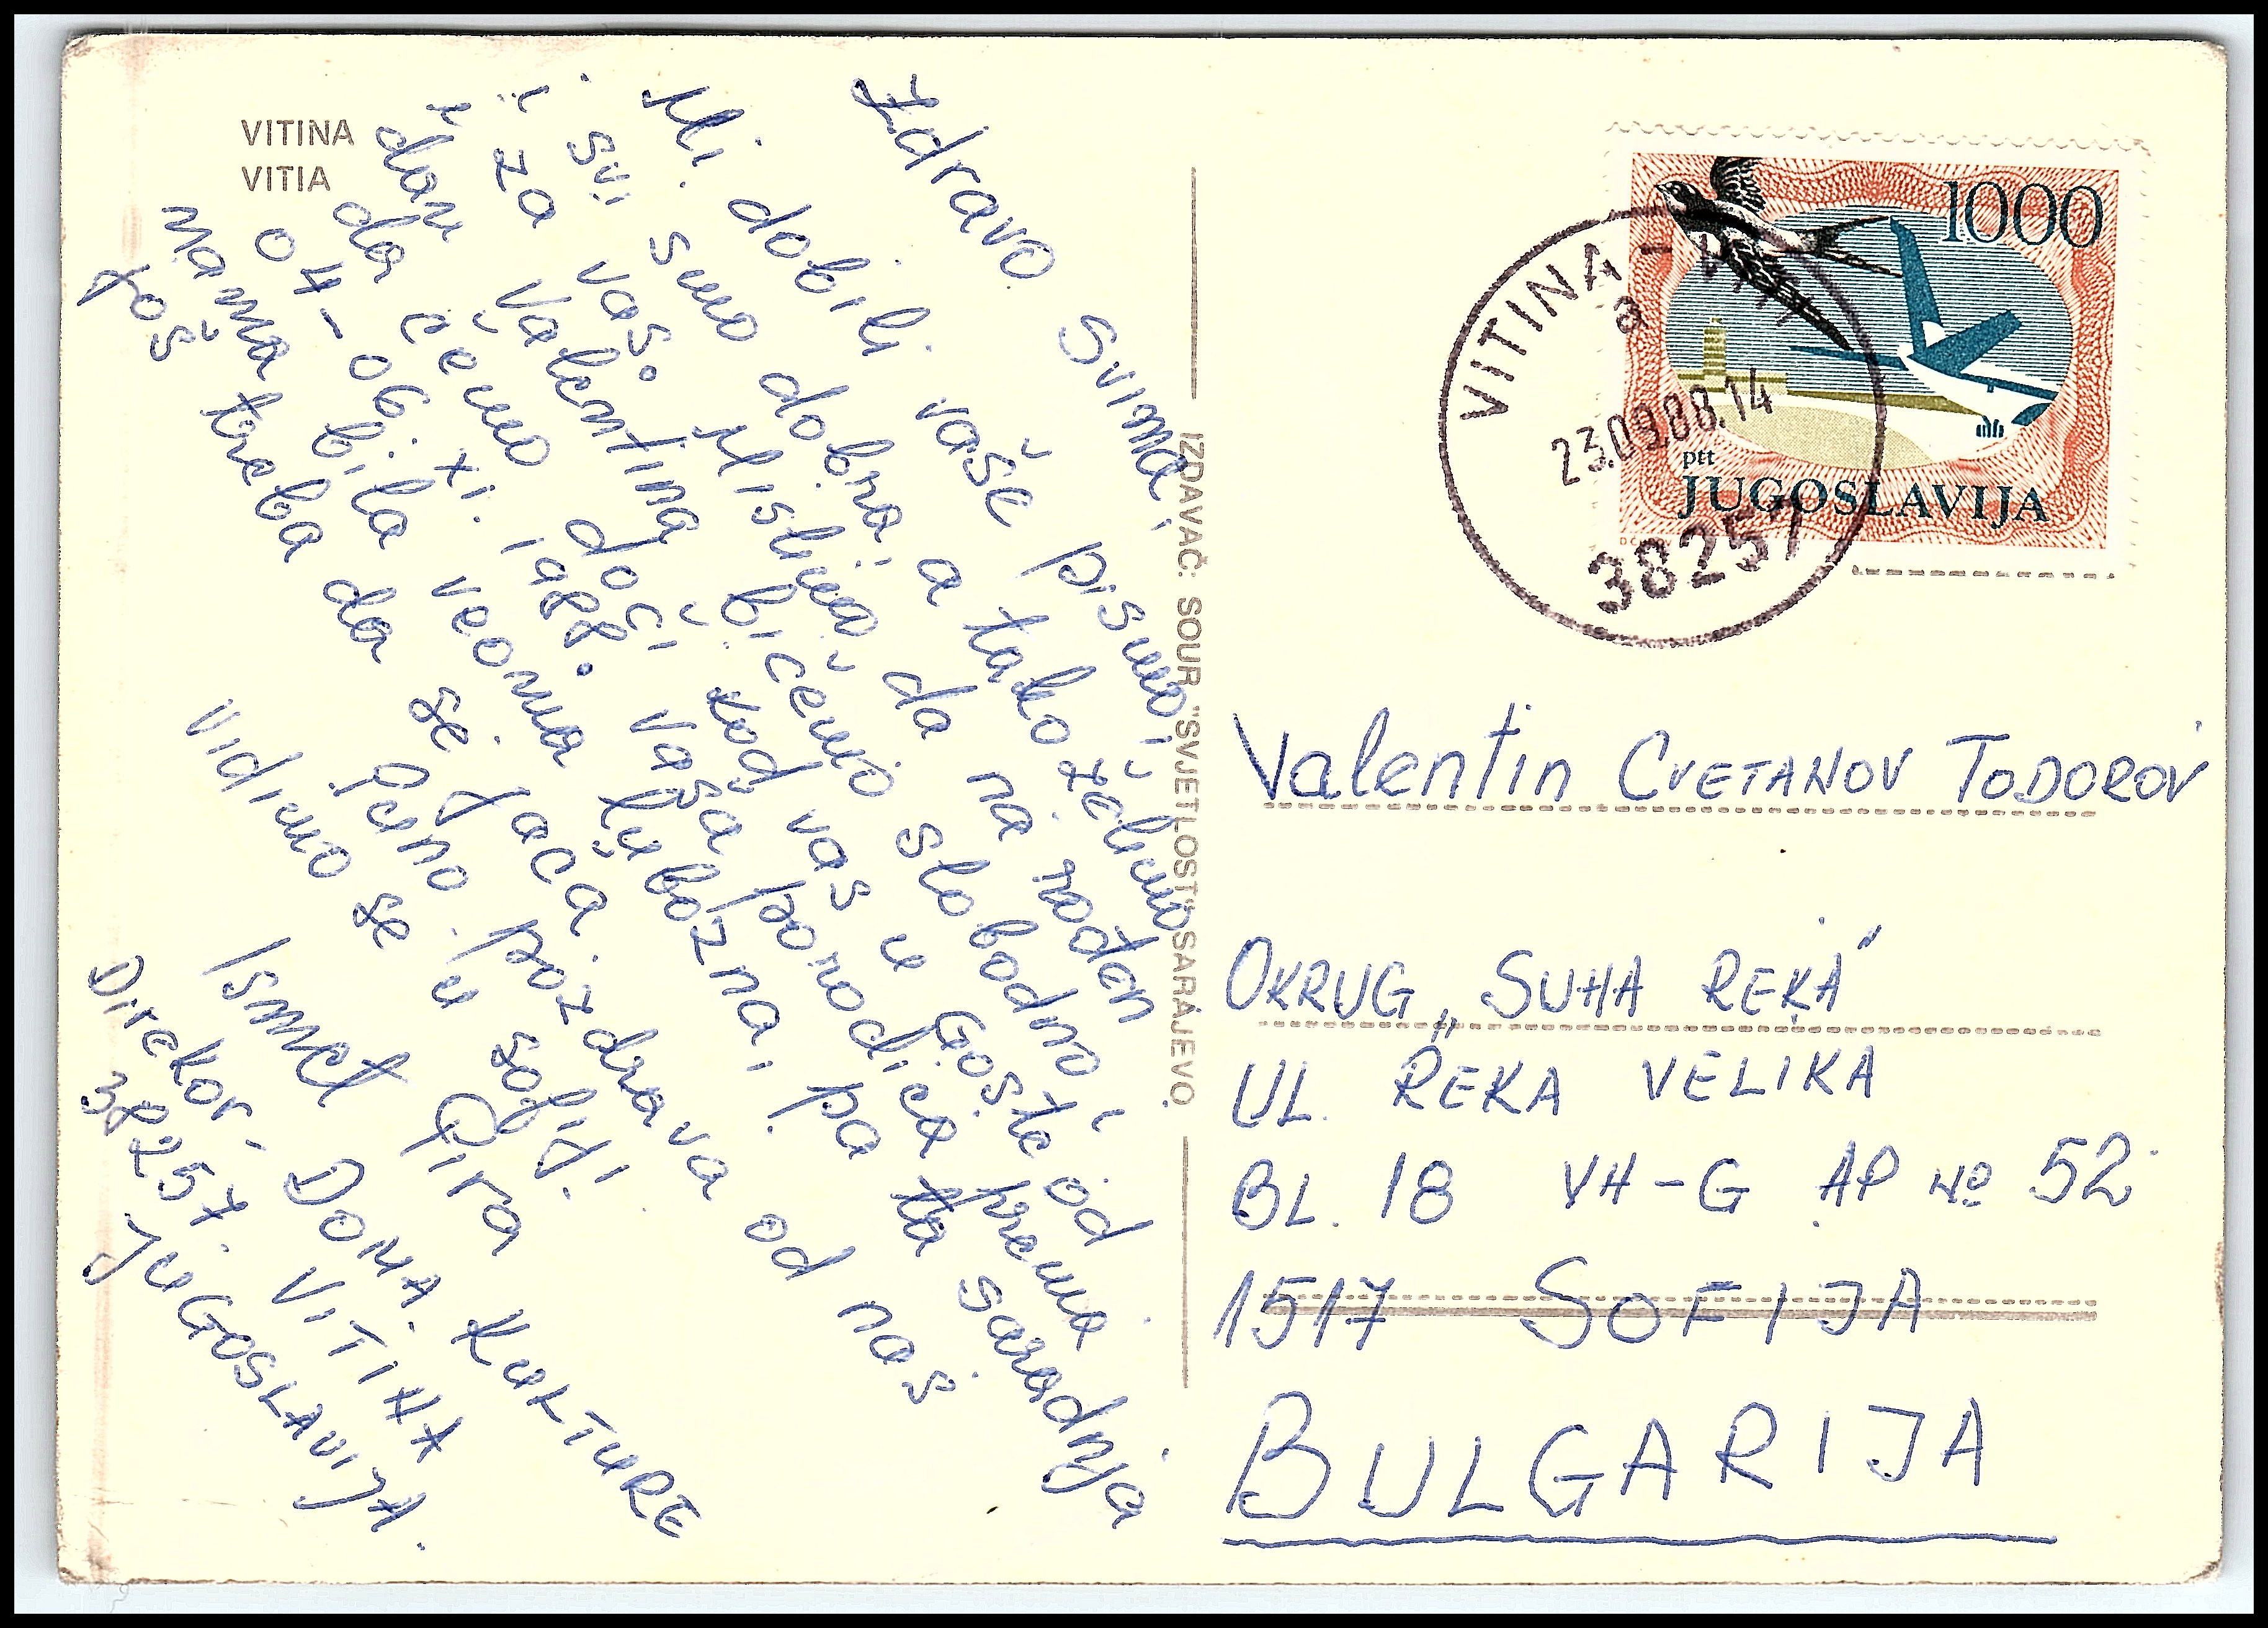 VITINA
VITIA
Zdravo Svima,
Mi dobili vaše pismo i
i svi smo dobra, a tako želimo
i za vas. Mislimo da na rođen
dan Valentina bićemo slobodno i
da ćemo doći kod vas u Goste od
04-06 XI. 1988. vaša porodica prema
nama bila veoma ljubozna, pa ta saradnja
još treba da se jača.
Puno pozdrava od nas
vidimo se u sofiji
Ismet Pira
Direktor. DOMA KULTURE
38257. VITINA
JUGOSLAVIJA.
IZDAVAČ: SOUR "SVJETLOST" SARAJEVO
1000
ptt
JUGOSLAVIJA
VITINA - VITI
a
23.09.88.14
38257
Valentin CVETANOV TODOROV
OKRUG „SUHA REKA"
UL. REKA VELIKA
BL. 18 VH-G AP No 52
1517 SOFIJA
BULGARIJA